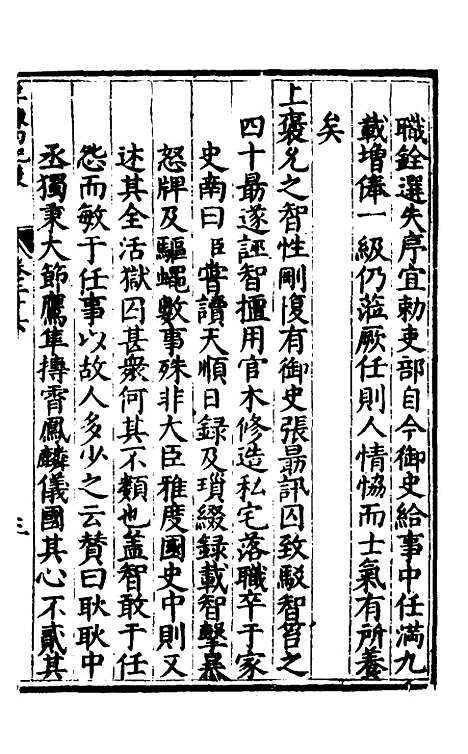 職銓選失序宜勅吏部自今御史給事中任滿九
載增俸一級仍蒞厥任則人情恊而士氣有所養
矣
上褒允之智性剛愎有御史張勗訊囚致駁智笞之
四十勗遂誣智擅用官木修造私宅落職卒于家
史南曰臣嘗讀天順日録及瑣綴録載智擊暴
怒牌及驅蠅數事殊非大臣雅度國史中則又
述其全活獄囚甚衆何其不類也盖智敢于任
怨而敏于任事以故人多少之云贊曰耿耿中
丞獨秉大節鷹隼摶霄鳳麟儀國其心不貳其
三